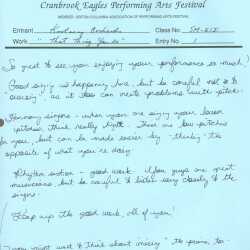 Cranbrook Eagles Performing Arts Festival
MEMBER: BRITISH COLUMBIA ASSOCIATION OF PERFORMING ARTS FESTIVALS
Entrant Kootenay Orchards Class No. SM-212
Work "That Thing You Do" Entry No. 1
So great to see you enjoying your performance so much!
Good energy is happening here, but be careful not to be
, as it too can create problems with pitch.
Harmony singers - when you are singing your lower
pitches, think really light. These are low pitches
for you, but can be made easier by "thinking" the
opposite of what you're doing.
Rhythm section - good work. You guys are great
musicians, but be careful to listen very closely to the
singers.
Keep up the good work, all of you!
You might want to think about moving to promo, too -